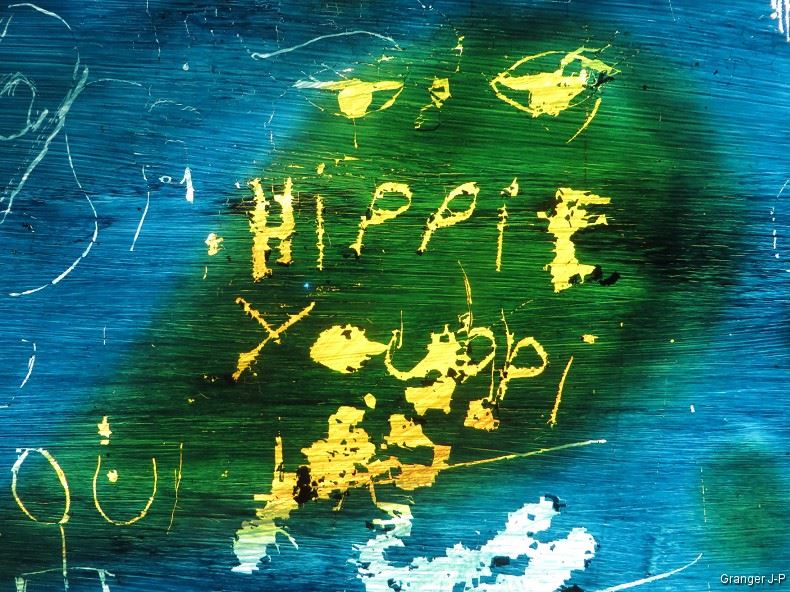 HiPPiE
Youppi
QUi
Granger J-P